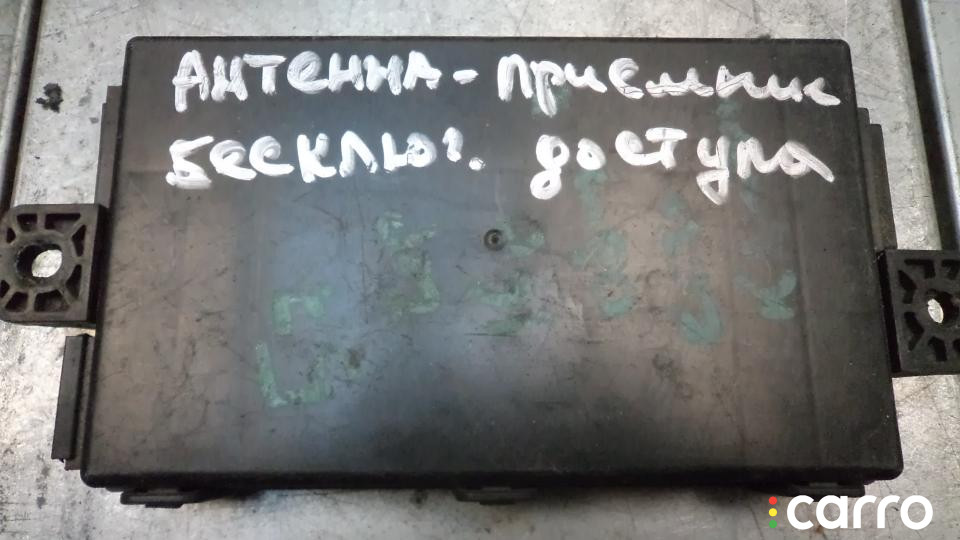 Антенна - приемник
бесключ. доступа
carro